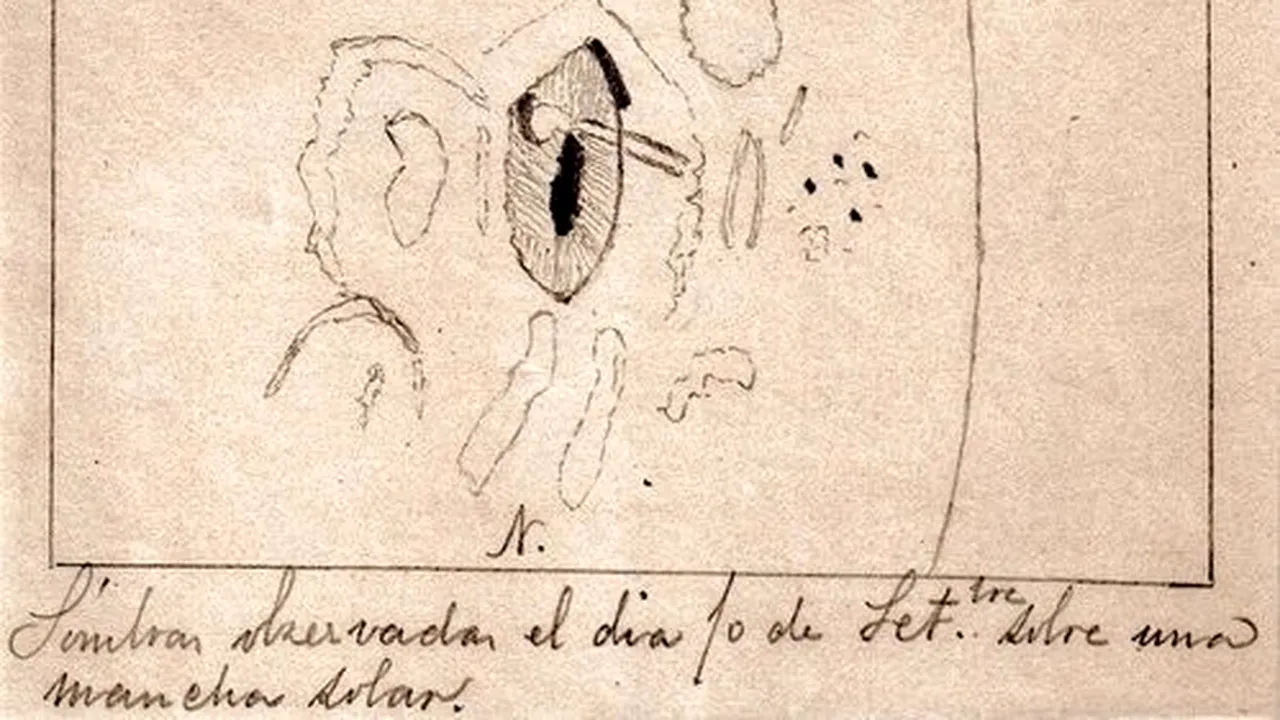 N.
Sómbras observadas el dia 10 de Set.tre sobre una
mancha solar.